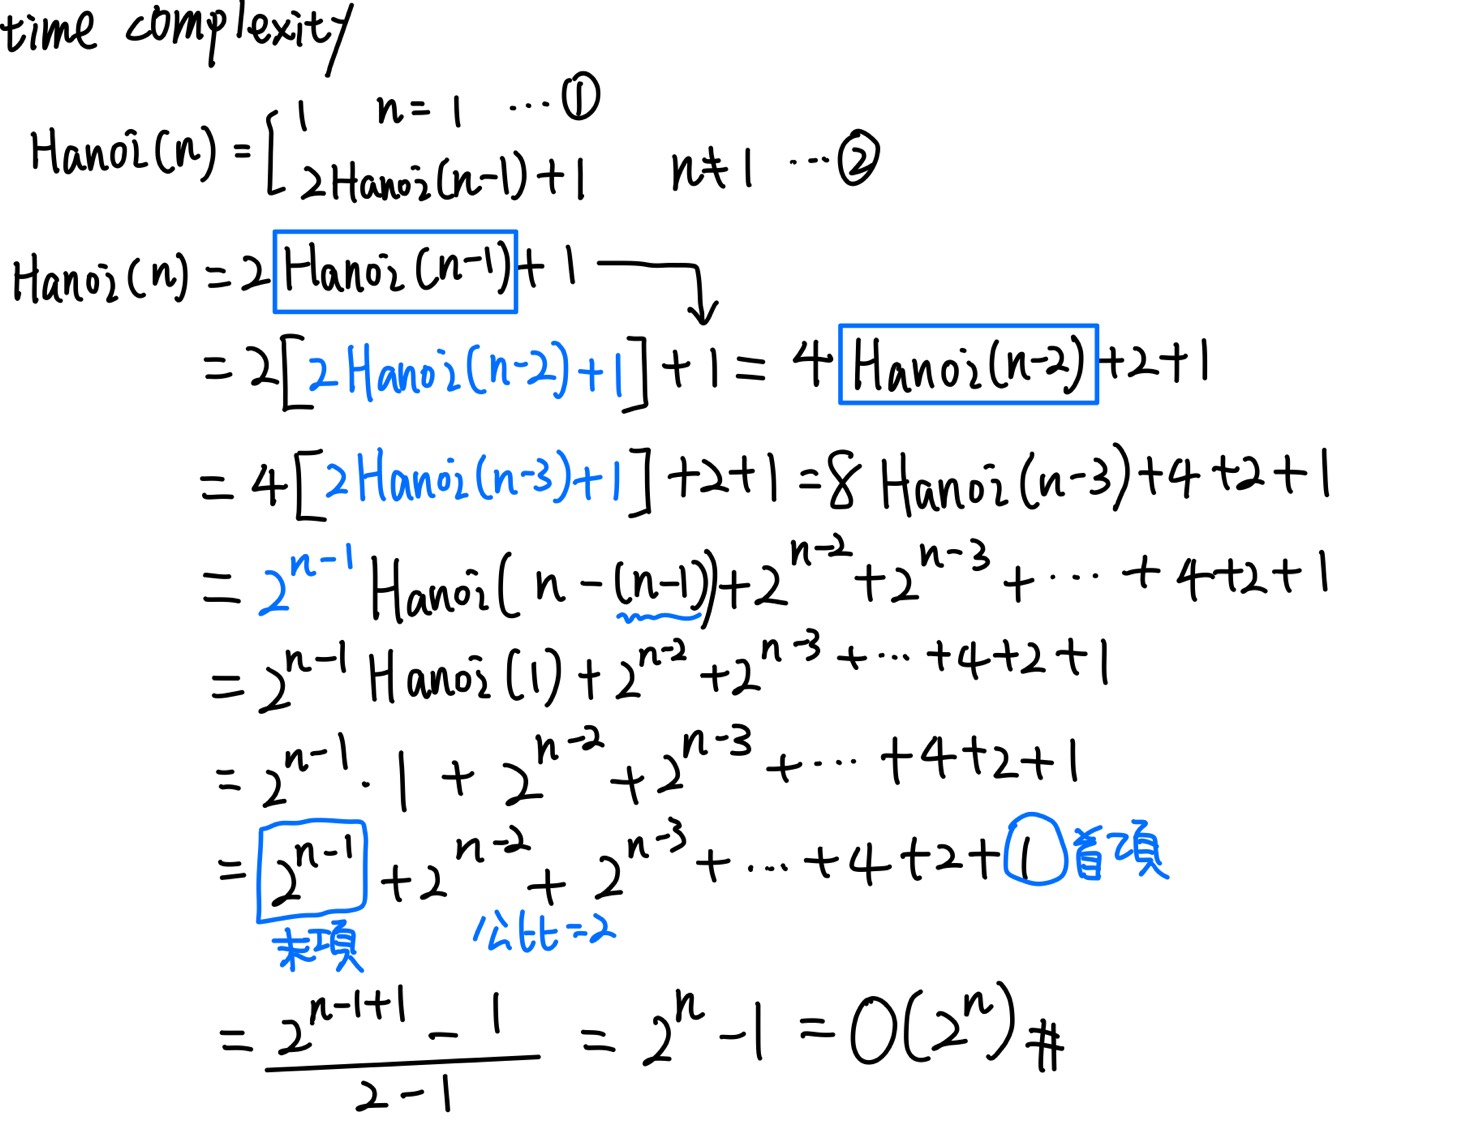 time complexity
Hanoi(n) = [ 1 n = 1 ... ①
2Hanoi(n-1)+1 n≠1 ... ②
Hanoi(n) = 2 Hanoi(n-1) + 1
= 2[2Hanoi(n-2)+1] + 1 = 4 Hanoi(n-2) +2+1
= 4[2Hanoi(n-3)+1] +2+1 = 8 Hanoi(n-3)+4+2+1
= 2^{n-1} Hanoi(n-(n-1))+2^{n-2}+2^{n-3}+...+4+2+1
= 2^{n-1} Hanoi(1)+2^{n-2}+2^{n-3}+...+4+2+1
= 2^{n-1}·1+2^{n-2}+2^{n-3}+...+4+2+1
= 2^{n-1}+2^{n-2}+2^{n-3}+...+4+2+1 首項
末項 公比=2
= \frac{2^{n-1+1}-1}{2-1} = 2^n-1 = O(2^n) #